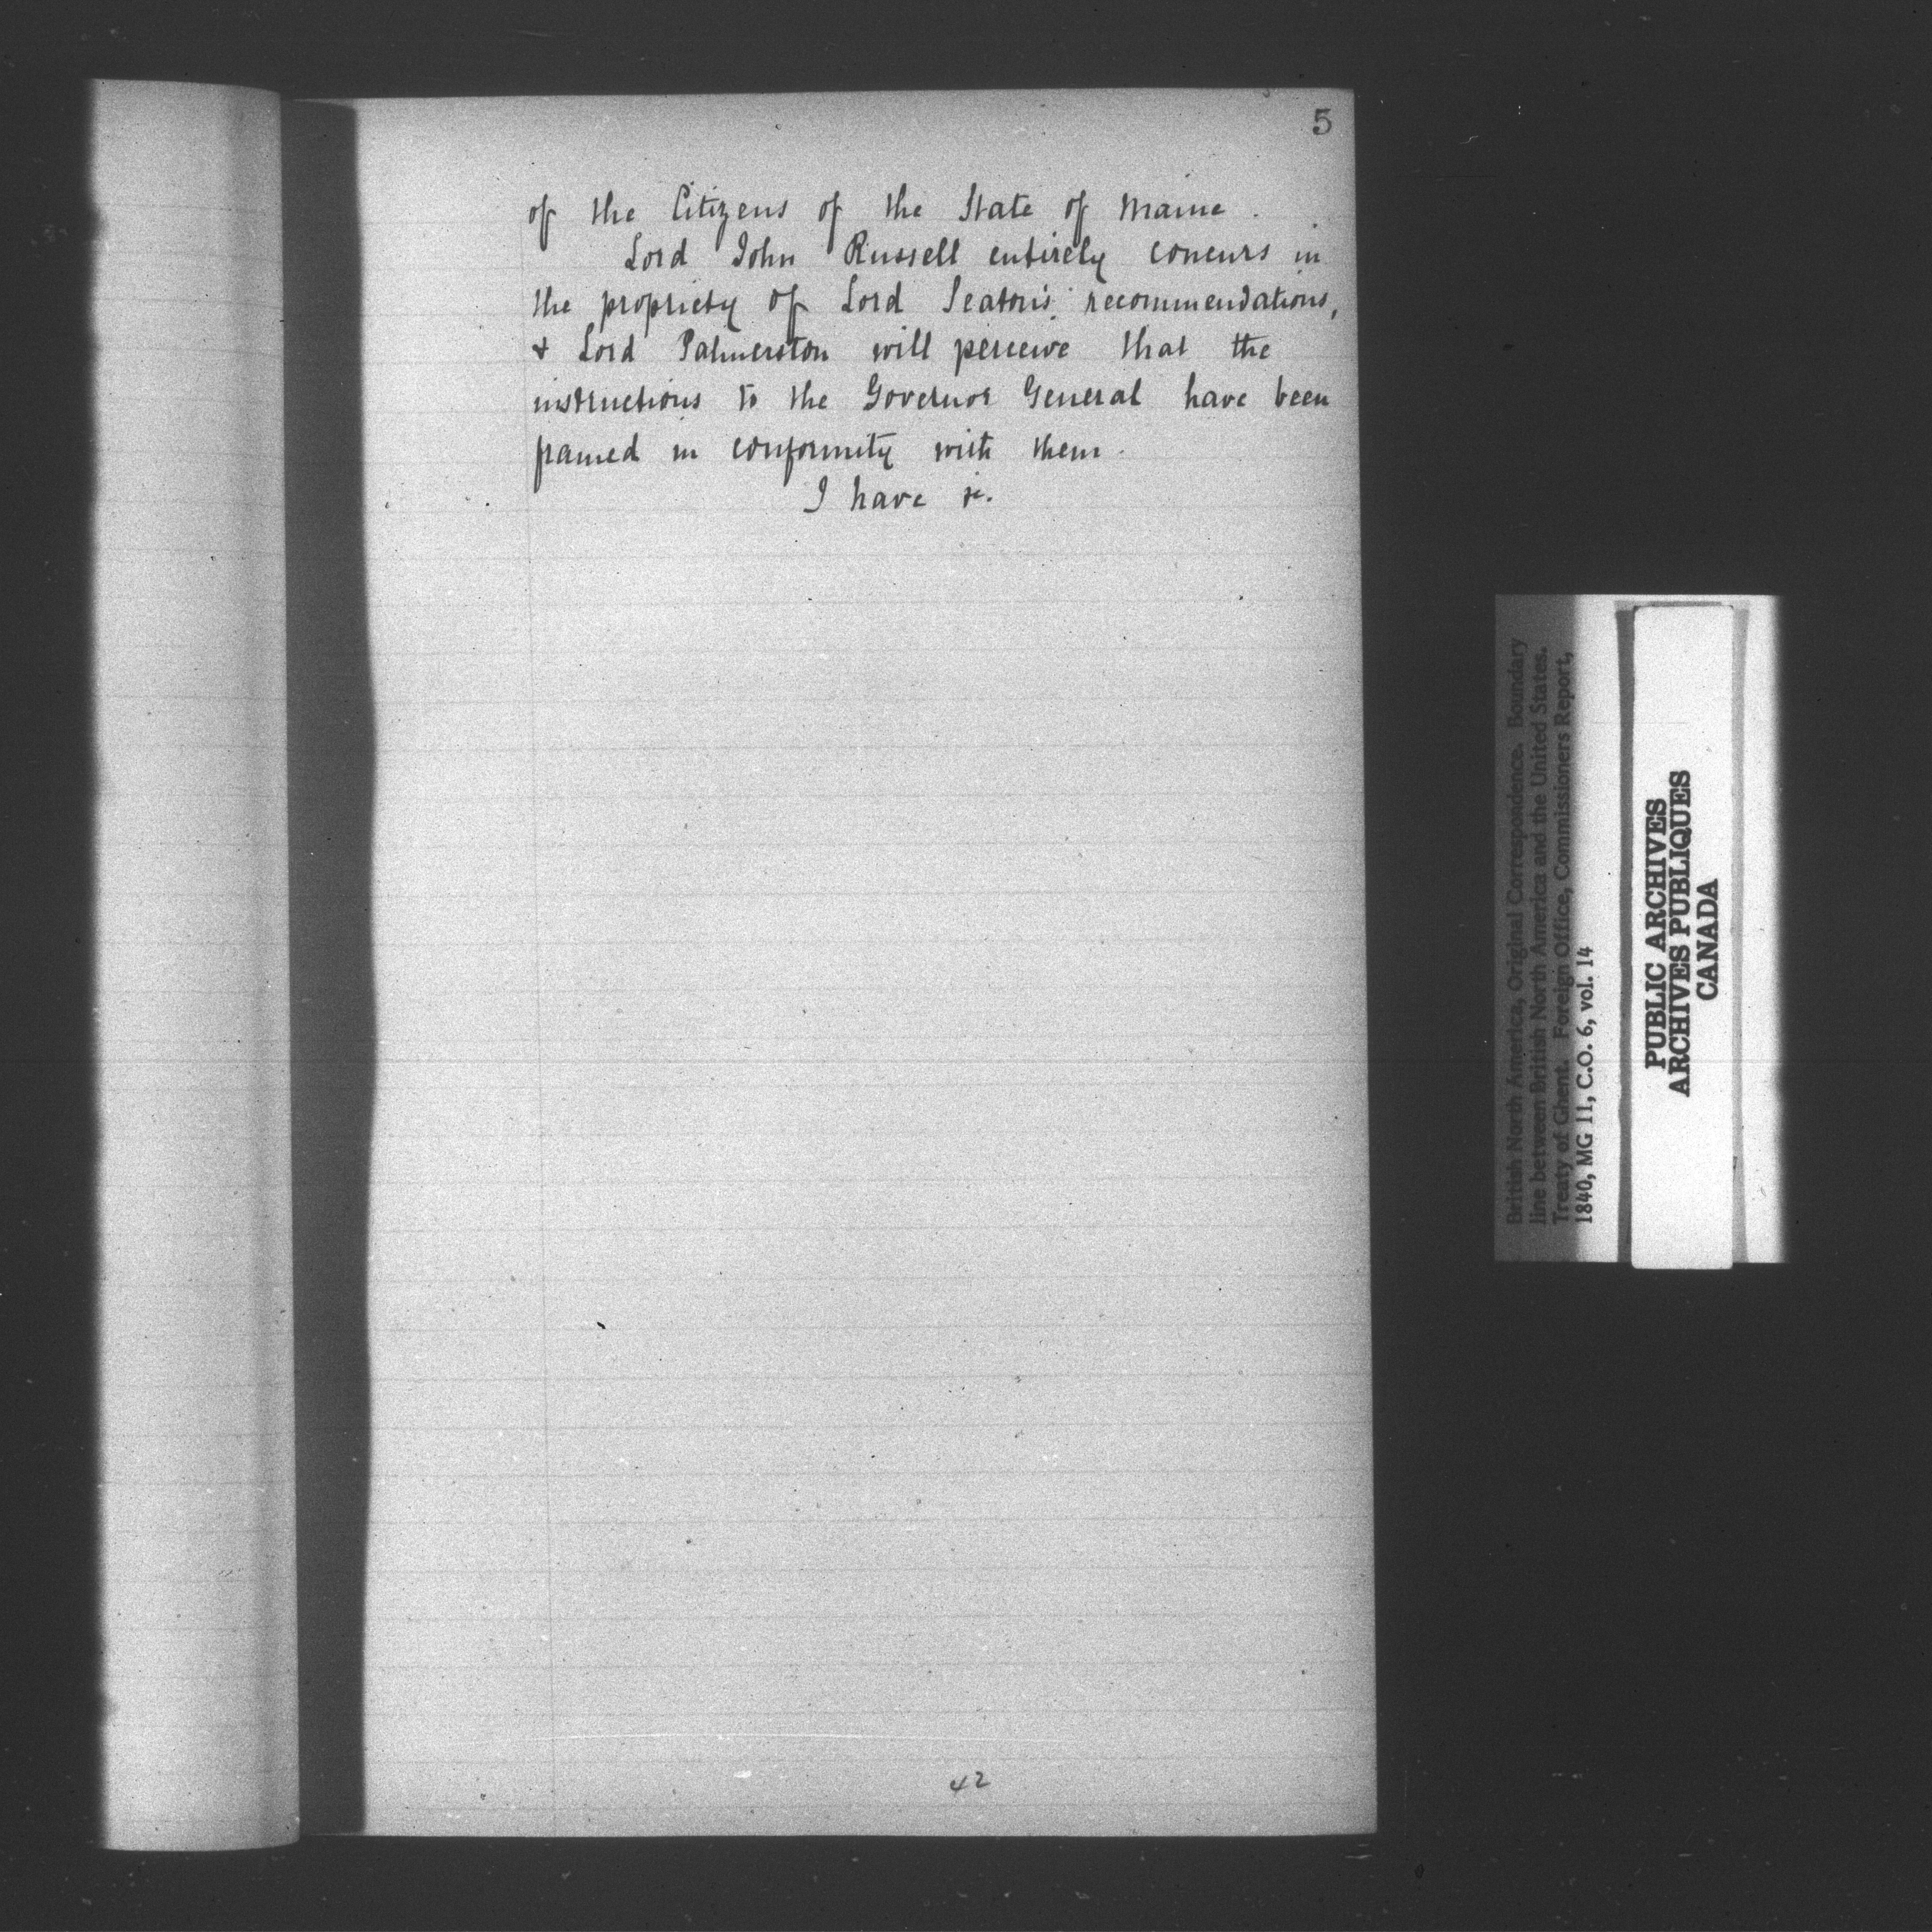 5
of the Citizens of the State of Maine.
Lord John Russell entirely concurs in
the propriety of Lord Seaton's recommendations,
& Lord Palmerston will perceive that the
instructions to the Governor General have been
framed in conformity with them.
I have &c.
42
British North America, Original Correspondence. Boundary
line between British North America and the United States.
Treaty of Ghent. Foreign Office, Commissioners Report,
1840, MG 11, C.O. 6, vol. 14
PUBLIC ARCHIVES
ARCHIVES PUBLIQUES
CANADA